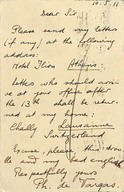 10.5.11
Dear Sir,
Please send my letters
(if any) at the following
address:
Hotel Ilion Athens.
Letters who should arri-
ve at your office after
the 13th shall be return-
ed at my home:
Chailly Lausanne
Switzerland
Excuse, please this trou-
ble and my bad english
Respectfully yours
Ph. de Vargas.